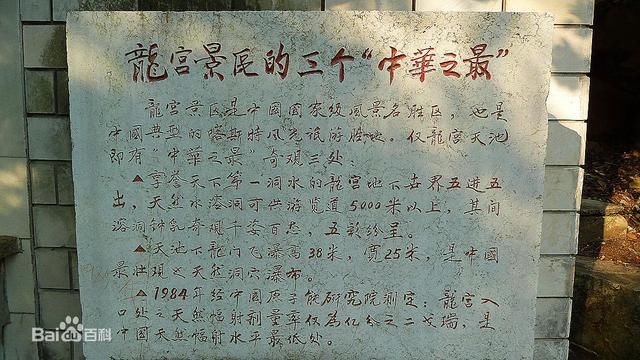 龍宮景區的三个“中華之最”
龍宮景区是中國國家级風景名胜区，也是
中國典型的喀斯特風光旅游胜地。仅龍宮天池
即有“中華之最”奇观三处：
▲享誉天下第一洞水的龍宮地下世界五进五
出，天然水溶洞可供游览道5000米以上，其间
溶洞钟乳奇观千姿百态，五彩纷呈。
▲天池下龍门飞瀑高38米，宽25米，是中國
最壮观之天然洞穴瀑布。
▲1984年经中國原子能研究院测定：龍宮入
口处之天然辐射剂量率仅為亿分之二戈瑞，是
中國天然辐射水平最低处。
Bai百科